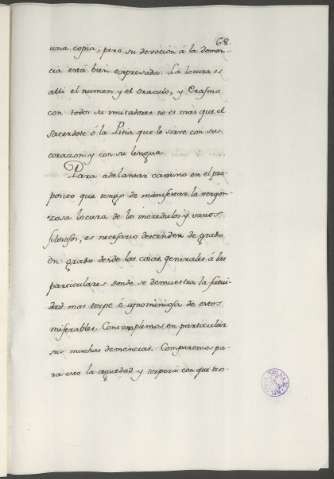 68
una copia, pero su devoción á la demen-
cia está bien expresada. La locura es
alli el numen y el oraculo, y Erasmo
con todos sus imitadores no es mas que el
sacerdote ó la Pitia que le sirve con su
corazon y con su lengua.
Para adelantar camino en el pro-
posito que tengo de manifestar la vergon-
zosa locura de los incredulos y varios
filosofos, es necesario descender de grado
en grado desde las cosas generales á las
particulares donde se demuestra la fatui-
dad mas torpe é ignominiosa de estos
miserables. Contemplemos en particular
sus muchas demencias. Comparemos pa-
ra esto la ceguedad y torpeza con que tro-